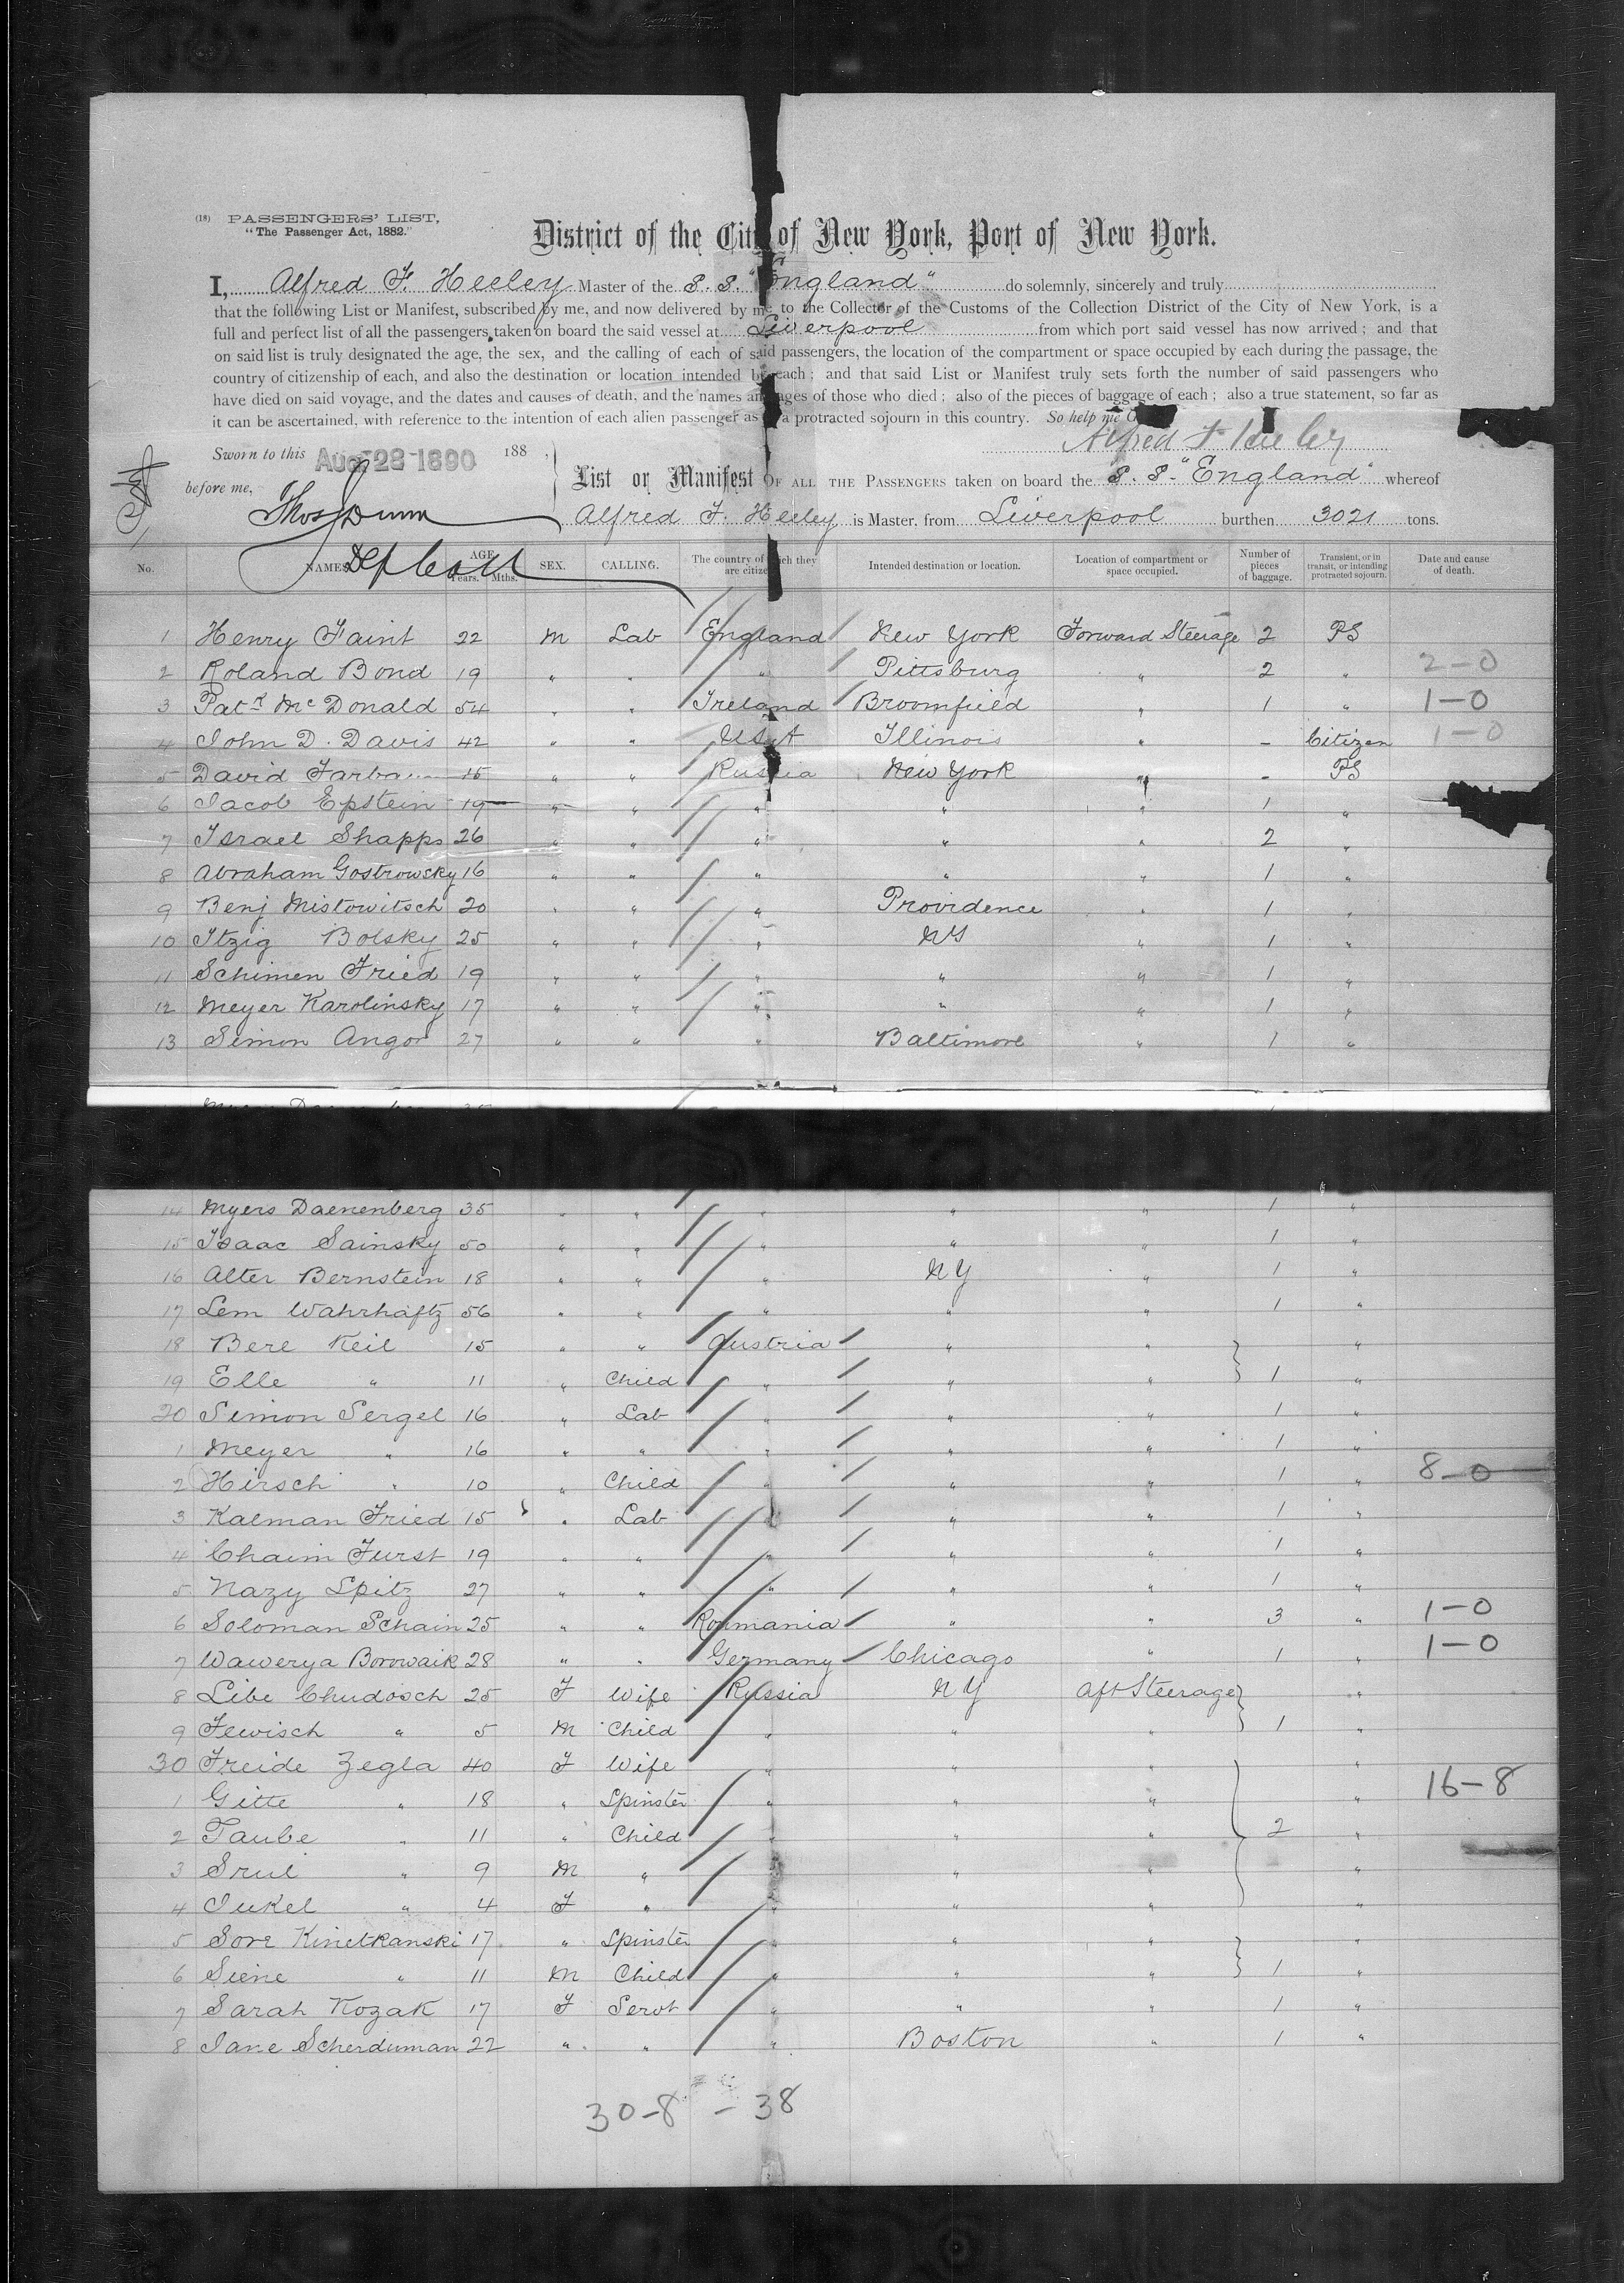 (18) PASSENGERS' LIST,
"The Passenger Act, 1882."
District of the City of New York, Port of New York.
I, Alfred F. Heeley Master of the S. S. "England" do solemnly, sincerely and truly
that the following List or Manifest, subscribed by me, and now delivered by me to the Collector of the Customs of the Collection District of the City of New York, is a
full and perfect list of all the passengers taken on board the said vessel at Liverpool from which port said vessel has now arrived; and that
on said list is truly designated the age, the sex, and the calling of each of said passengers, the location of the compartment or space occupied by each during the passage, the
country of citizenship of each, and also the destination or location intended by each; and that said List or Manifest truly sets forth the number of said passengers who
have died on said voyage, and the dates and causes of death, and the names and ages of those who died; also of the pieces of baggage of each; also a true statement, so far as
it can be ascertained, with reference to the intention of each alien passenger as a protracted sojourn in this country. So help me
Alfred F. Heeley
Sworn to this Aug 28 1890 188 ,
before me,
List or Manifest OF ALL THE PASSENGERS taken on board the S. S. "England" whereof
Thos Dunn
Alfred F. Heeley is Master, from Liverpool burthen 3021 tons.
Dep Coll
No. NAMES AGE Years. Mths. SEX. CALLING. The country of which they are citizens Intended destination or location. Location of compartment or space occupied. Number of pieces of baggage. Transient, or in transit, or intending protracted sojourn. Date and cause of death.
1 Henry Faint 22 M Lab England New York Forward Steerage 2 PS
2 Roland Bond 19 " " " Pittsburg " 2 " 2-0
3 Patk McDonald 54 " " Ireland Broomfield " 1 " 1-0
4 John D. Davis 42 " " USA Illinois " - Citizen 1-0
5 David 15 " " Russia New York " - PS
6 Jacob Epstein 19 " " " " " 1 "
7 Israel Shapps 26 " " " " " 2 "
8 Abraham Gostrowsky 16 " " " " " 1 "
9 Benj Mistowitsch 20 " " " Providence " 1 "
10 Itzig Bolsky 25 " " " NY " 1 "
11 Schimen Fried 19 " " " " " 1 "
12 Meyer Karolinsky 17 " " " " " 1 "
13 Simon Angor 27 " " " Baltimore " 1 "
14 Myers Daenenberg 35 " " " " " 1 "
15 Isaac Sainsky 50 " " " " " 1 "
16 Alter Bernstein 18 " " " NY " 1 "
17 Lem Wahrhaftz 56 " " " " " 1 "
18 Berl Keil 15 " " Austria " " "
19 Elle " 11 " Child " " " 1 "
20 Simon Sergel 16 " Lab " " " 1 "
1 Meyer " 16 " " " " " 1 "
2 Hirsch " 10 " Child " " " 1 " 8-0
3 Kalman Fried 15 " Lab " " " 1 "
4 Chaim Furst 19 " " " " " 1 "
5 Nazy Spitz 27 " " " " " 1 "
6 Soloman Schain 25 " " Roumania " " 3 " 1-0
7 Wawerya Borowaik 28 " " Germany Chicago " 1 " 1-0
8 Libe Chudosch 25 F Wife Russia NY Aft Steerage "
9 Fewisch " 5 M Child " " " 1 "
30 Freide Zegla 40 F Wife " " " "
1 Gitte " 18 " Spinster " " " " 16-8
2 Taube " 11 " Child " " " 2 "
3 Srul " 9 M " " " " "
4 Jukel " 4 F " " " " "
5 Sore Kinetkanski 17 " Spinster " " " "
6 Siene " 11 M Child " " " 1 "
7 Sarah Kozak 17 F Servt " " " 1 "
8 Jane Scherduman 22 " " " Boston " 1 "
30-8 - 38